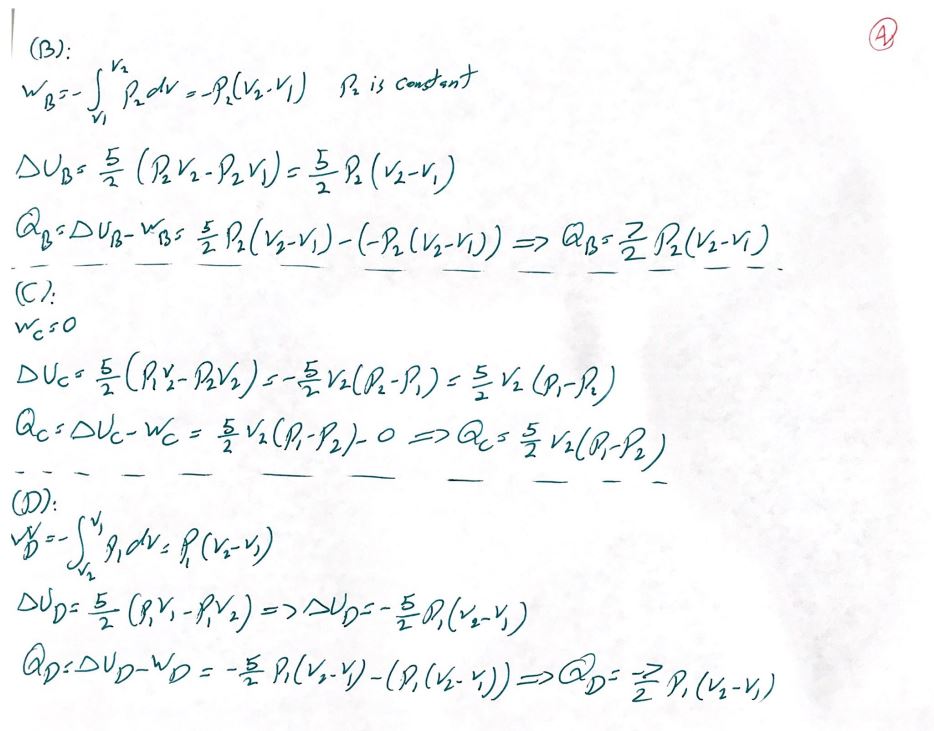 4
(B):
W_B = -∫_{V_1}^{V_2} P_2 dV = -P_2(V_2-V_1)   P_2 is constant
ΔU_B = 5/2 (P_2V_2 - P_2V_1) = 5/2 P_2 (V_2-V_1)
Q_B = ΔU_B - W_B = 5/2 P_2(V_2-V_1) - (-P_2(V_2-V_1)) => Q_B = 7/2 P_2(V_2-V_1)
(C):
W_C = 0
ΔU_C = 5/2 (P_1V_2 - P_2V_2) = -5/2 V_2(P_2-P_1) = 5/2 V_2 (P_1-P_2)
Q_C = ΔU_C - W_C = 5/2 V_2(P_1-P_2) - 0 => Q_C = 5/2 V_2(P_1-P_2)
(D):
W_D = -∫_{V_2}^{V_1} P_1 dV = P_1(V_2-V_1)
ΔU_D = 5/2 (P_1V_1 - P_1V_2) => ΔU_D = -5/2 P_1(V_2-V_1)
Q_D = ΔU_D - W_D = -5/2 P_1(V_2-V_1) - (P_1(V_2-V_1)) => Q_D = -7/2 P_1(V_2-V_1)